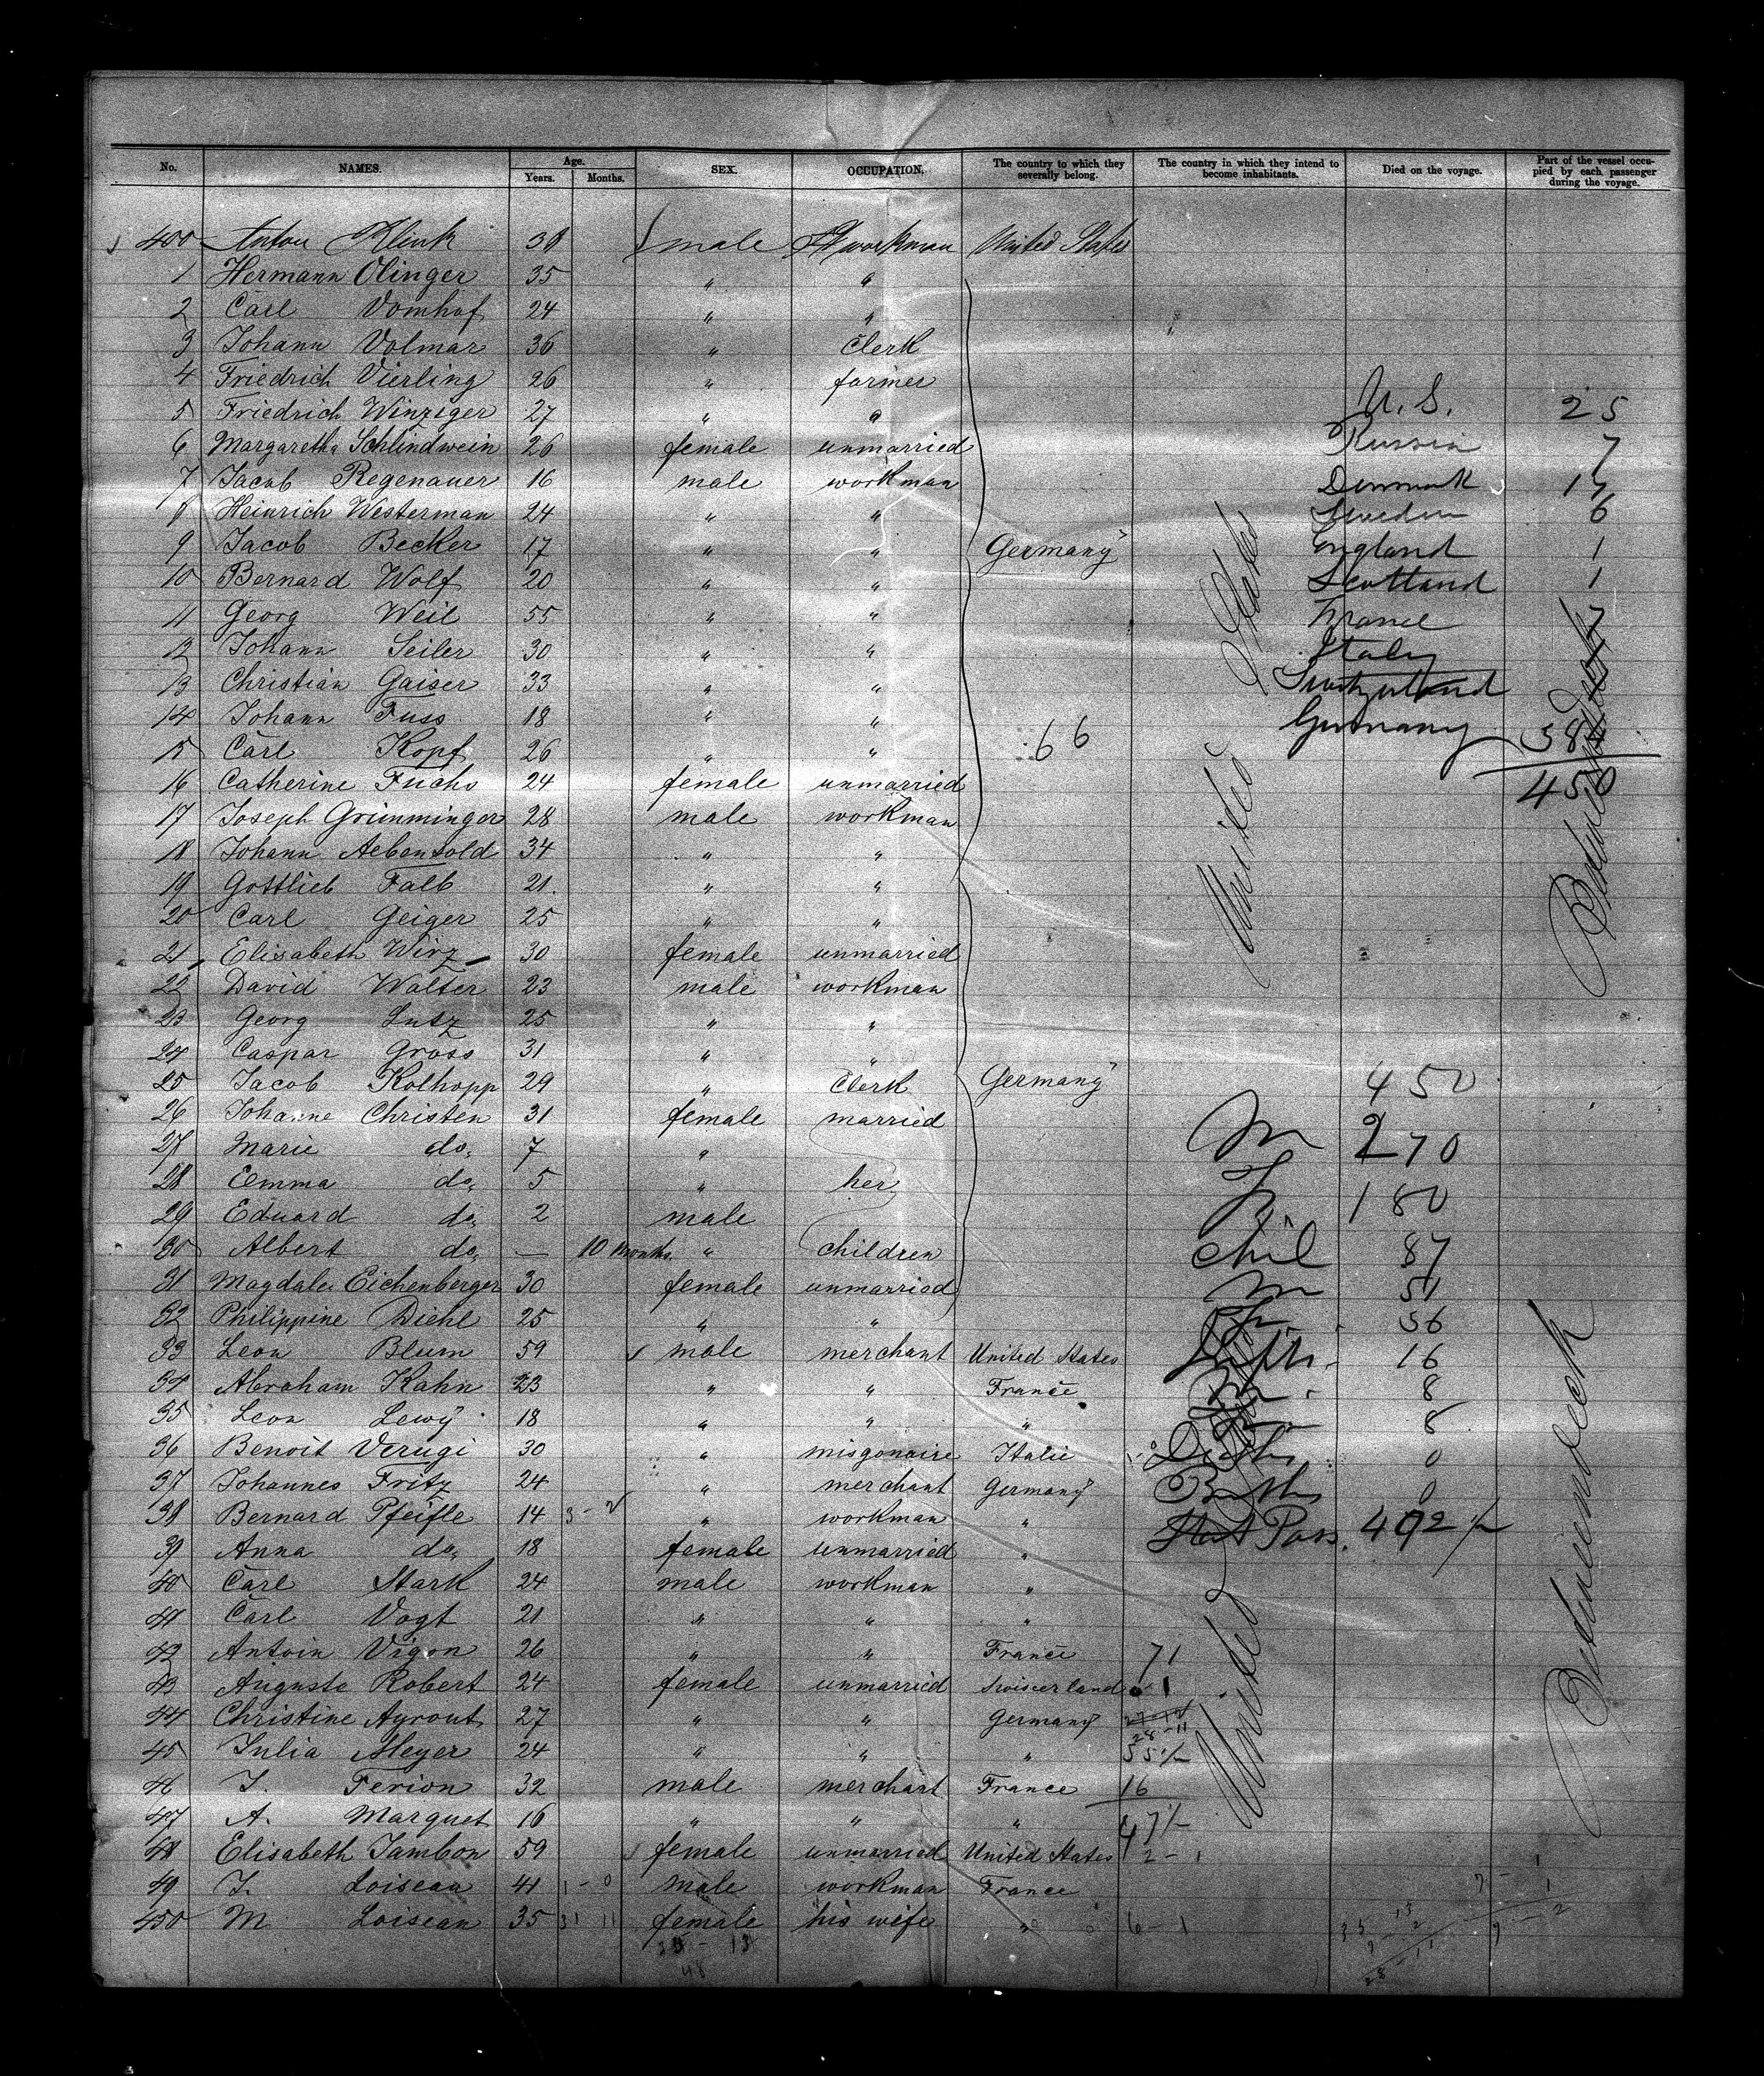 No. NAMES. Age. Years. Months. SEX. OCCUPATION. The country to which they severally belong. The country in which they intend to become inhabitants. Died on the voyage. Part of the vessel occupied by each passenger during the voyage.
400 Anton Klink 38 male workman United States
1 Hermann Olinger 35 " "
2 Carl Vomhof 24 " "
3 Johann Volmar 36 " Clerk
4 Friedrich Vierling 26 " farmer
5 Friedrich Winziger 27 " " U.S. 25
6 Margaretha Schlindwein 26 female unmarried Russia 7
7 Jacob Regenauer 16 male workman Denmark
8 Heinrich Westerman 24 " " Sweden 6
9 Jacob Becker 17 " " Germany England 1
10 Bernard Wolf 20 " " Scotland 1
11 Georg Weil 55 " " France
12 Johann Seiler 30 " " Italy
13 Christian Gaiser 33 " " Switzerland
14 Johann Fuss 18 " " Germany
15 Carl Kopf 26 " " 66
16 Catherine Fuchs 24 female unmarried
17 Joseph Grimminger 28 male workman
18 Johann Aebensold 34 " "
19 Gottlieb Falb 21 " "
20 Carl Geiger 25 " "
21 Elisabeth Wirz 30 female unmarried
22 David Walter 23 male workman
23 Georg Lutz 25 " "
24 Caspar Gross 31 " "
25 Jacob Kolhopp 29 " Clerk Germany 450
26 Johanne Christen 31 female married M 270
27 Marie do. 7 "
28 Emma do. 5 " her 180
29 Eduard do. 2 male
30 Albert do. — 10 months. " children Chil 87
31 Magdale Eichenberger 30 female unmarried M 51
32 Philippine Diehl 25 " " 36
33 Leon Blum 59 male merchant United States 16
34 Abraham Kahn 23 " " France 8
35 Leon Lewy 18 " " " 8
36 Benoit Verugi 30 " misgonaire Italie Deaths 0
37 Johannes Fritz 24 " merchant Germany Births 0
38 Bernard Pfeifle 14 " workman " Pass. 492
39 Anna do. 18 female unmarried "
40 Carl Stark 24 male workman "
41 Carl Vogt 21 " " "
42 Antoin Vigon 26 " " France 71
43 Auguste Robert 24 female unmarried Swiscerland 1
44 Christine Ayrout 27 " " Germany
45 Julia Meyer 24 " " "
46 J. Ferion 32 male merchant France 16
47 A. Marquet 16 " " " 47
48 Elisabeth Jambon 59 female unmarried United States 2 - 1
49 J. Loiseau 41 male workman France
450 M Loiseau 35 female his wife " 6 - 1
United States
United States
Betweendeck